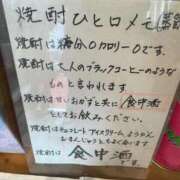 焼酎ひと口メモ
焼酎は糖分0カロリー0です。
焼酎は大人のブラックコーヒーのような
ものと言われます
焼酎は甘いおかずと共に食中酒
としてお飲みください。
焼酎はチョコレートアイスクリームようかん
おまんじゅうともよくあいます
焼酎は食中酒です